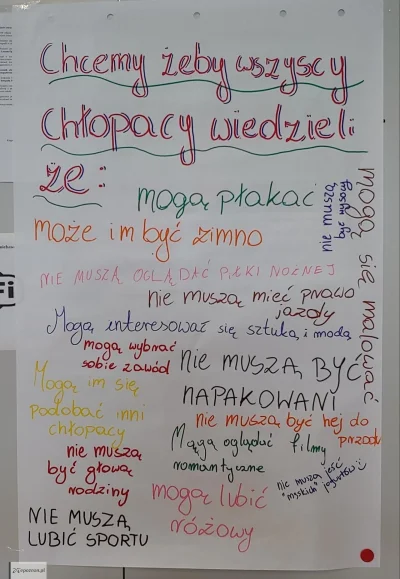 Chcemy żeby wszyscy
chłopacy wiedzieli
że:
mogą płakać
nie muszą
być wysocy
mogą się malować
może im być zimno
NIE MUSZĄ OGLĄDAĆ PIŁKI NOŻNEJ
nie muszą mieć prawo
jazdy
Mogą interesować się sztuką i modą
mogą wybrać
sobie zawód
NIE MUSZĄ BYĆ
NAPAKOWANI
Mogą im się
podobać inni
chłopacy
nie muszą być hej do
przodu
Mogą oglądać filmy
romantyczne
nie muszą
być głową
rodziny
nie muszą jeść
"męskich" jogurtów :)
mogą lubić
różowy
NIE MUSZĄ
LUBIĆ SPORTU
epoznan.pl
Fi